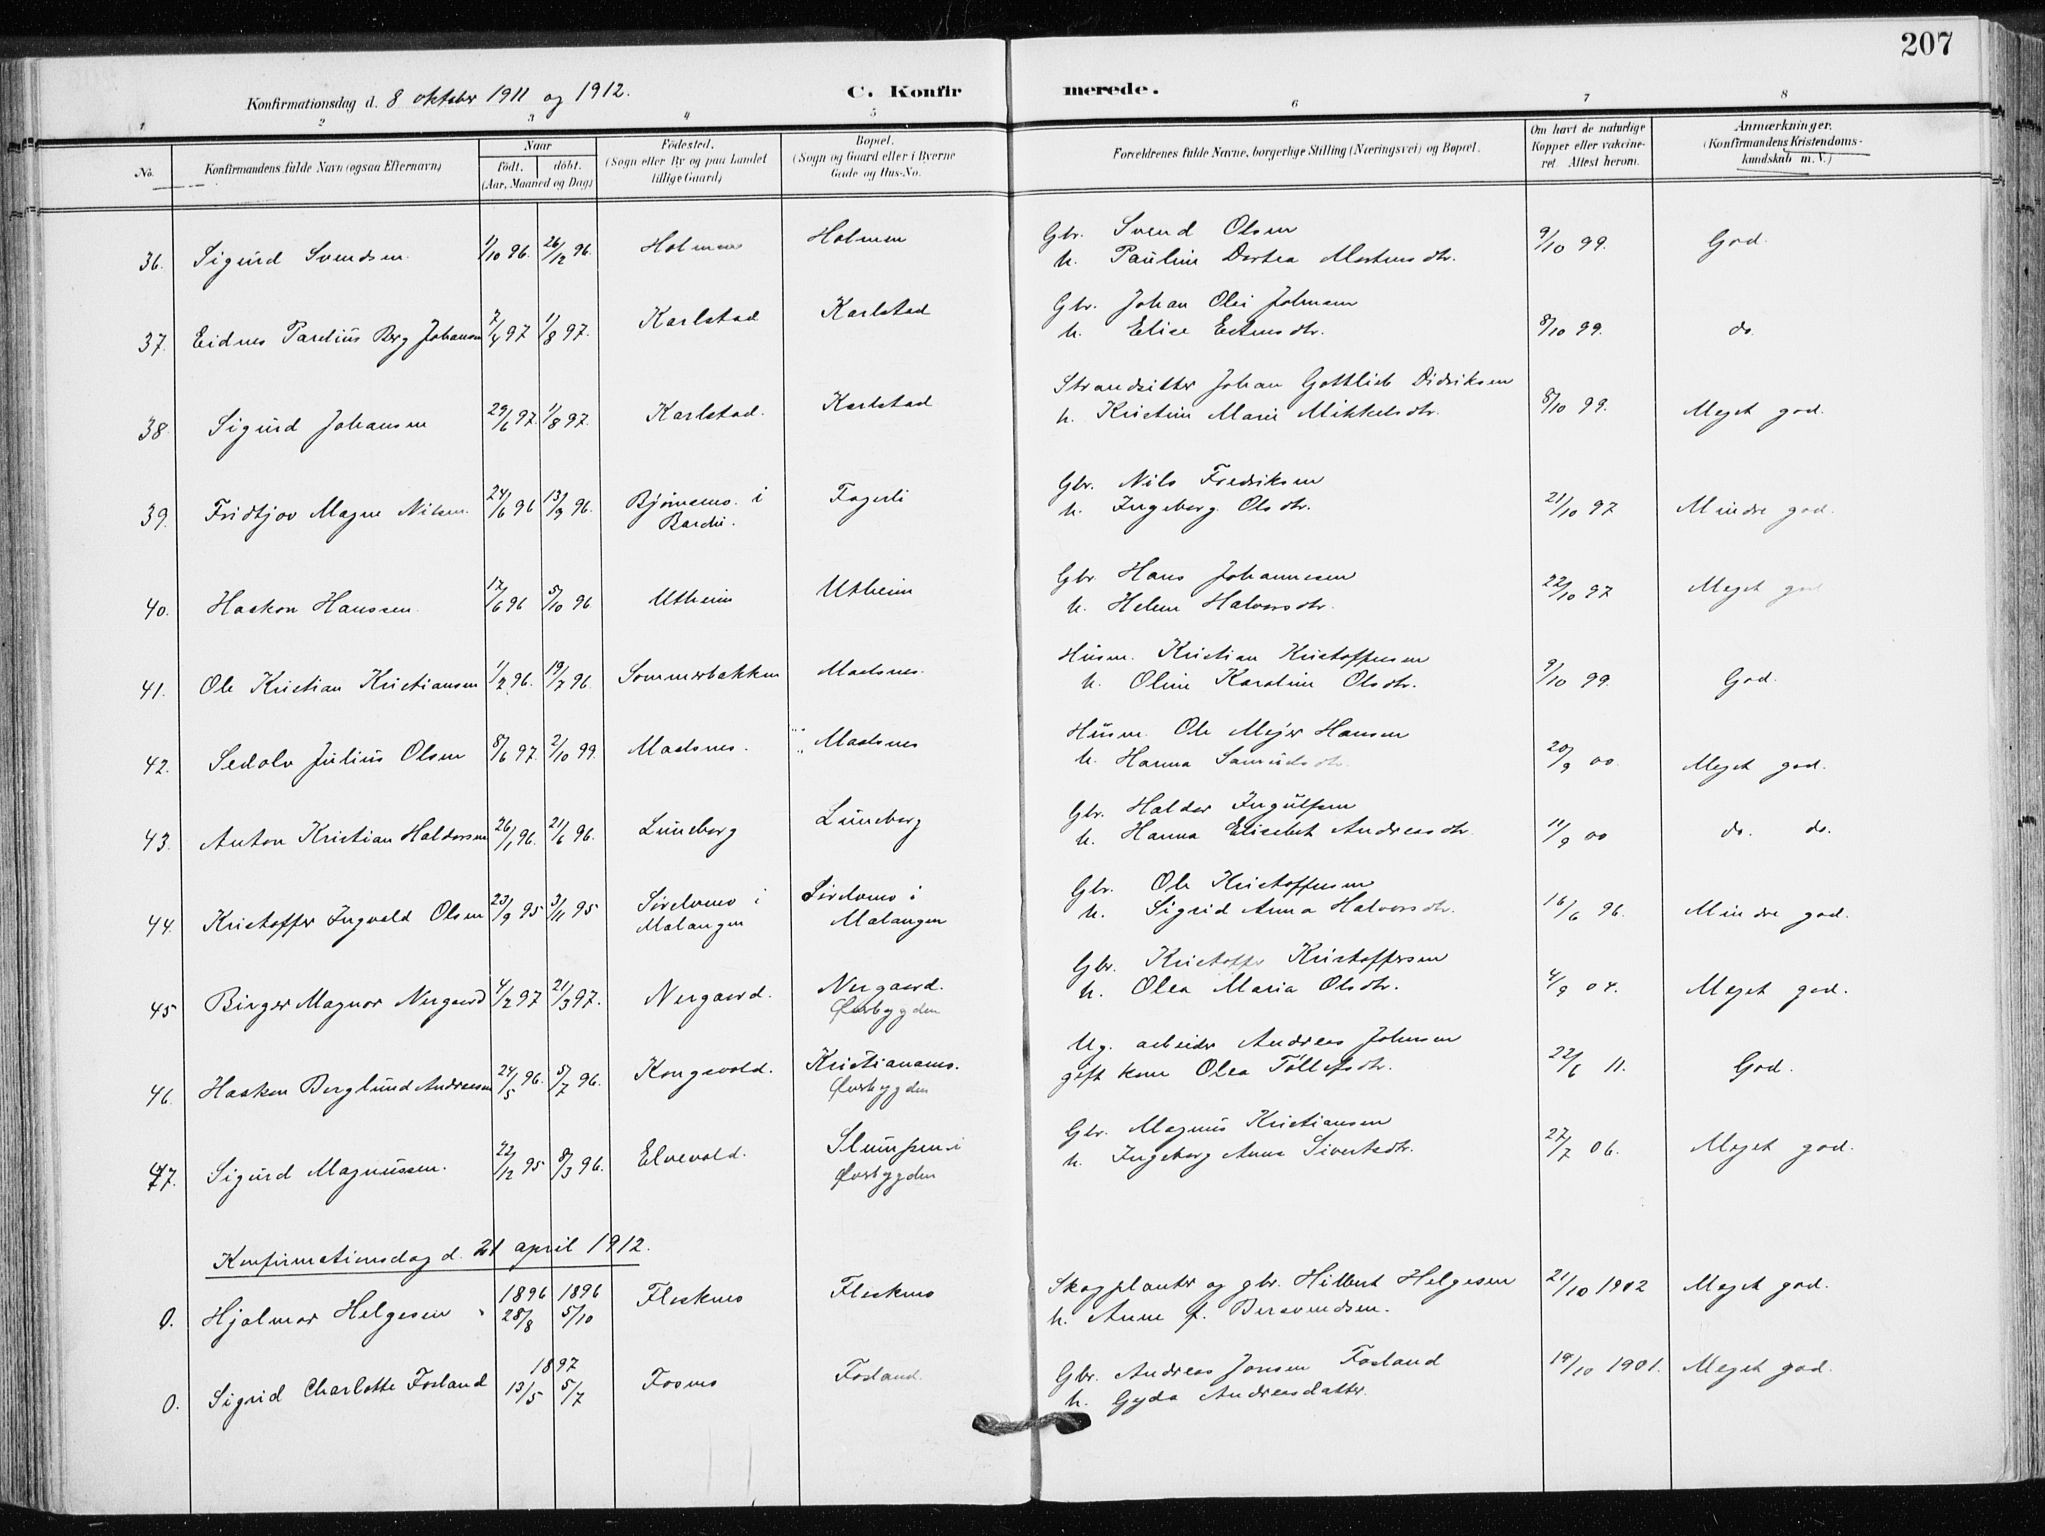 207
Konfirmationsdag d. 8 oktober 1911 og 1912.
C. Konfirmerede.
1 2 3 4 5 6 7 8
No.
Konfirmandens fulde Navn (ogsaa Efternavn)
Naar
født. døbt.
(Aar, Maaned og Dag)
Fødested.
(Sogn eller By og paa Landet
tillige Gaard)
Bopæl.
(Sogn og Gaard eller i Byerne
Gade og Hus-No.
Forældrenes fulde Navne, borgerlige Stilling (Næringsvei) og Bopæl.
Om havt de naturlige
Kopper eller vakcine-
ret. Attest herom.
Anmærkninger.
(Konfirmandens Kristendoms-
kundskab m.V.)
36. Sigurd Svendsen 1/10 96. 26/12 96. Holmen Holmen Gbr. Svend Olsen 9/10 99. God.
h. Pauline Dortea Mortensdtr.
37. Eidnes Parelius Berg Johansen 7/4 97 1/8 97. Karlstad Karlstad Gbr. Johan Olai Johnsen 8/10 99. do.
h. Elise Estensdtr.
38. Sigurd Johansen 29/6 97. 1/8 97. Karlstad. Karlstad Strandsitter Johan Gottlieb Didriksen 8/10 99. Meget god.
h. Kristine Marie Mikkelsdtr.
39. Fridtjov Magne Nilsen. 24/6 96 13/9 96. Bjørnemo. i Fagerli Gbr. Nils Fredriksen 21/10 97 Mindre god.
Bardu. h. Ingeborg Olsdtr.
40. Haakon Hanssen. 17/6 96 5/10 96 Utheim Utheim Gbr. Hans Johannesen 22/10 97 Meget god
h. Helene Halvorsdtr.
41. Ole Kristian Kristiansen 1/2 96. 19/7 96. Sommerbakken Maalsnes. Husm. Kristian Kristoffersen 9/10 99. God.
h. Oline Karoline Olsdtr.
42. Sedolv Julius Olsen 8/6 97. 2/10 99. Maalsnes. Maalsnes Husm. Ole Mejer Hansen 20/9 00. Meget god.
h. Hanna Samuelsdtr.
43. Anton Kristian Haldorsen 26/1 96. 21/6 96. Luneborg Luneborg Gbr. Haldor Ingulfsen 11/9 00 do. do.
h. Hanna Elisebet Andreasdtr.
44. Kristoffer Ingvald Olsen 23/9 95 3/11 95 Sørelvmo i Sørelvmo i Gbr. Ole Kristoffersen 16/6 96. Mindre god.
Malangen Malangen h. Sigrid Anna Halvorsdtr.
45 Birger Magnor Nergaard 4/2 97 21/3 97. Nergaard. Nergaard. Gbr. Kristoffer Kristoffersen 4/9 04. Meget god.
Øverbygden h. Olea Maria Olsdtr.
46. Haakon Berglund Andreasen 24/5 96. 5/7 96. Kongsvold. Kristianamo. Ug. arbeider Andreas Johnsen 22/6 11. God.
Øverbygden gift kone Olea Tollefsdtr.
47. Sigurd Magnussen. 22/12 95 8/3 96. Elvevold. Slumpen i Gbr. Magnus Kristiansen 27/7 06. Meget god.
Øverbygden h. Ingeborg Anna Sivertsdtr.
Konfirmationsdag d. 21 april 1912.
0. Hjalmar Helgesen 1896 28/8 1896 5/10 Fleskmo Fleskmo Skogplanter og gbr. Hilbert Helgesen 21/10 1902 Meget god.
h. Anne f. Bersvendsen.
0. Sigrid Charlotte Fosland 1897 13/5 5/7 Fosmo Fosland. Gbr. Andreas Jonsen Fosland 19/10 1901. Meget god.
h. Gyda Andreasdatter.